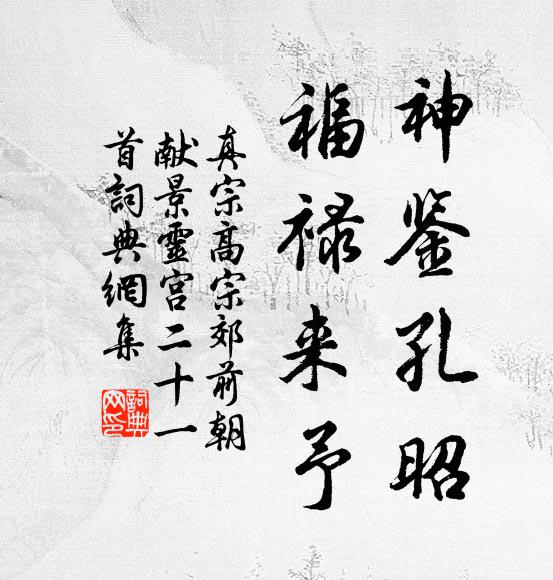 神鉴孔昭
福禄来予
真宗高宗郊前朝
献景靈宫二十一
首詞典網集
詞典
网印